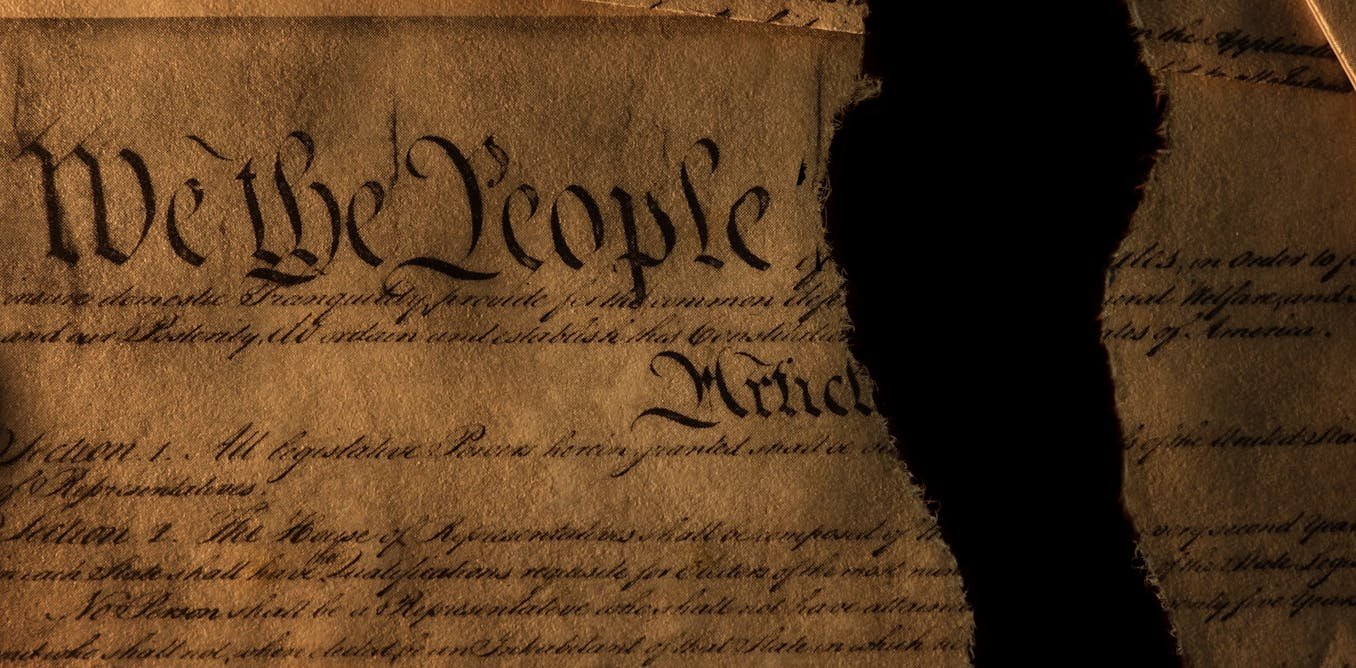 the Applicati
We the People
insure domestic Tranquility, provide for the common Defe
tes, in Order to f
onal Welfare, and
and our Posterity, do ordain and establish this Constitutio
ates of America.
Article
Section 1. All legislative Powers herein granted shall be ve
s of the United Sta
of Representatives.
Section 2. The House of Representatives shall be composed of M
every second Year
in each State shall have the Qualifications requisite for Electors of the most num
of the State Legis
No Person shall be a Representative who shall not have attained
wenty five Years
and who shall not, when elected, be an Inhabitant of that State in which